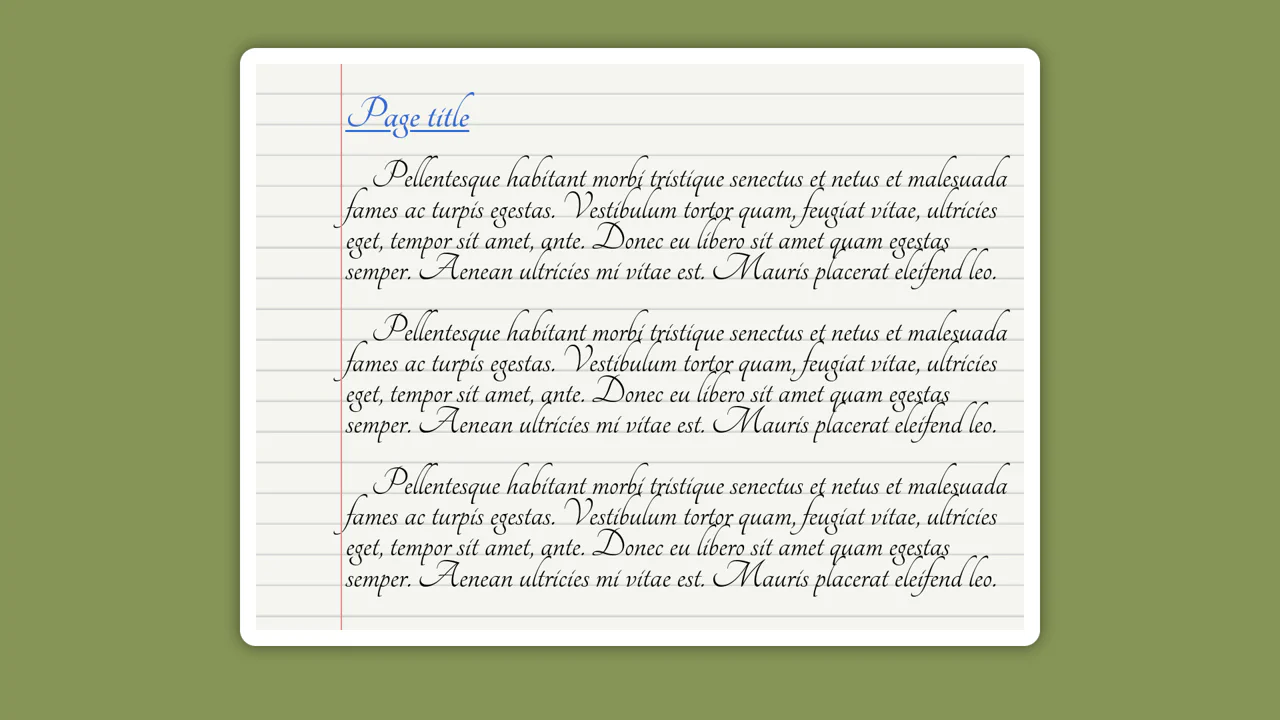 Page title
Pellentesque habitant morbi tristique senectus et netus et malesuada
fames ac turpis egestas. Vestibulum tortor quam, feugiat vitae, ultricies
eget, tempor sit amet, ante. Donec eu libero sit amet quam egestas
semper. Aenean ultricies mi vitae est. Mauris placerat eleifend leo.
Pellentesque habitant morbi tristique senectus et netus et malesuada
fames ac turpis egestas. Vestibulum tortor quam, feugiat vitae, ultricies
eget, tempor sit amet, ante. Donec eu libero sit amet quam egestas
semper. Aenean ultricies mi vitae est. Mauris placerat eleifend leo.
Pellentesque habitant morbi tristique senectus et netus et malesuada
fames ac turpis egestas. Vestibulum tortor quam, feugiat vitae, ultricies
eget, tempor sit amet, ante. Donec eu libero sit amet quam egestas
semper. Aenean ultricies mi vitae est. Mauris placerat eleifend leo.